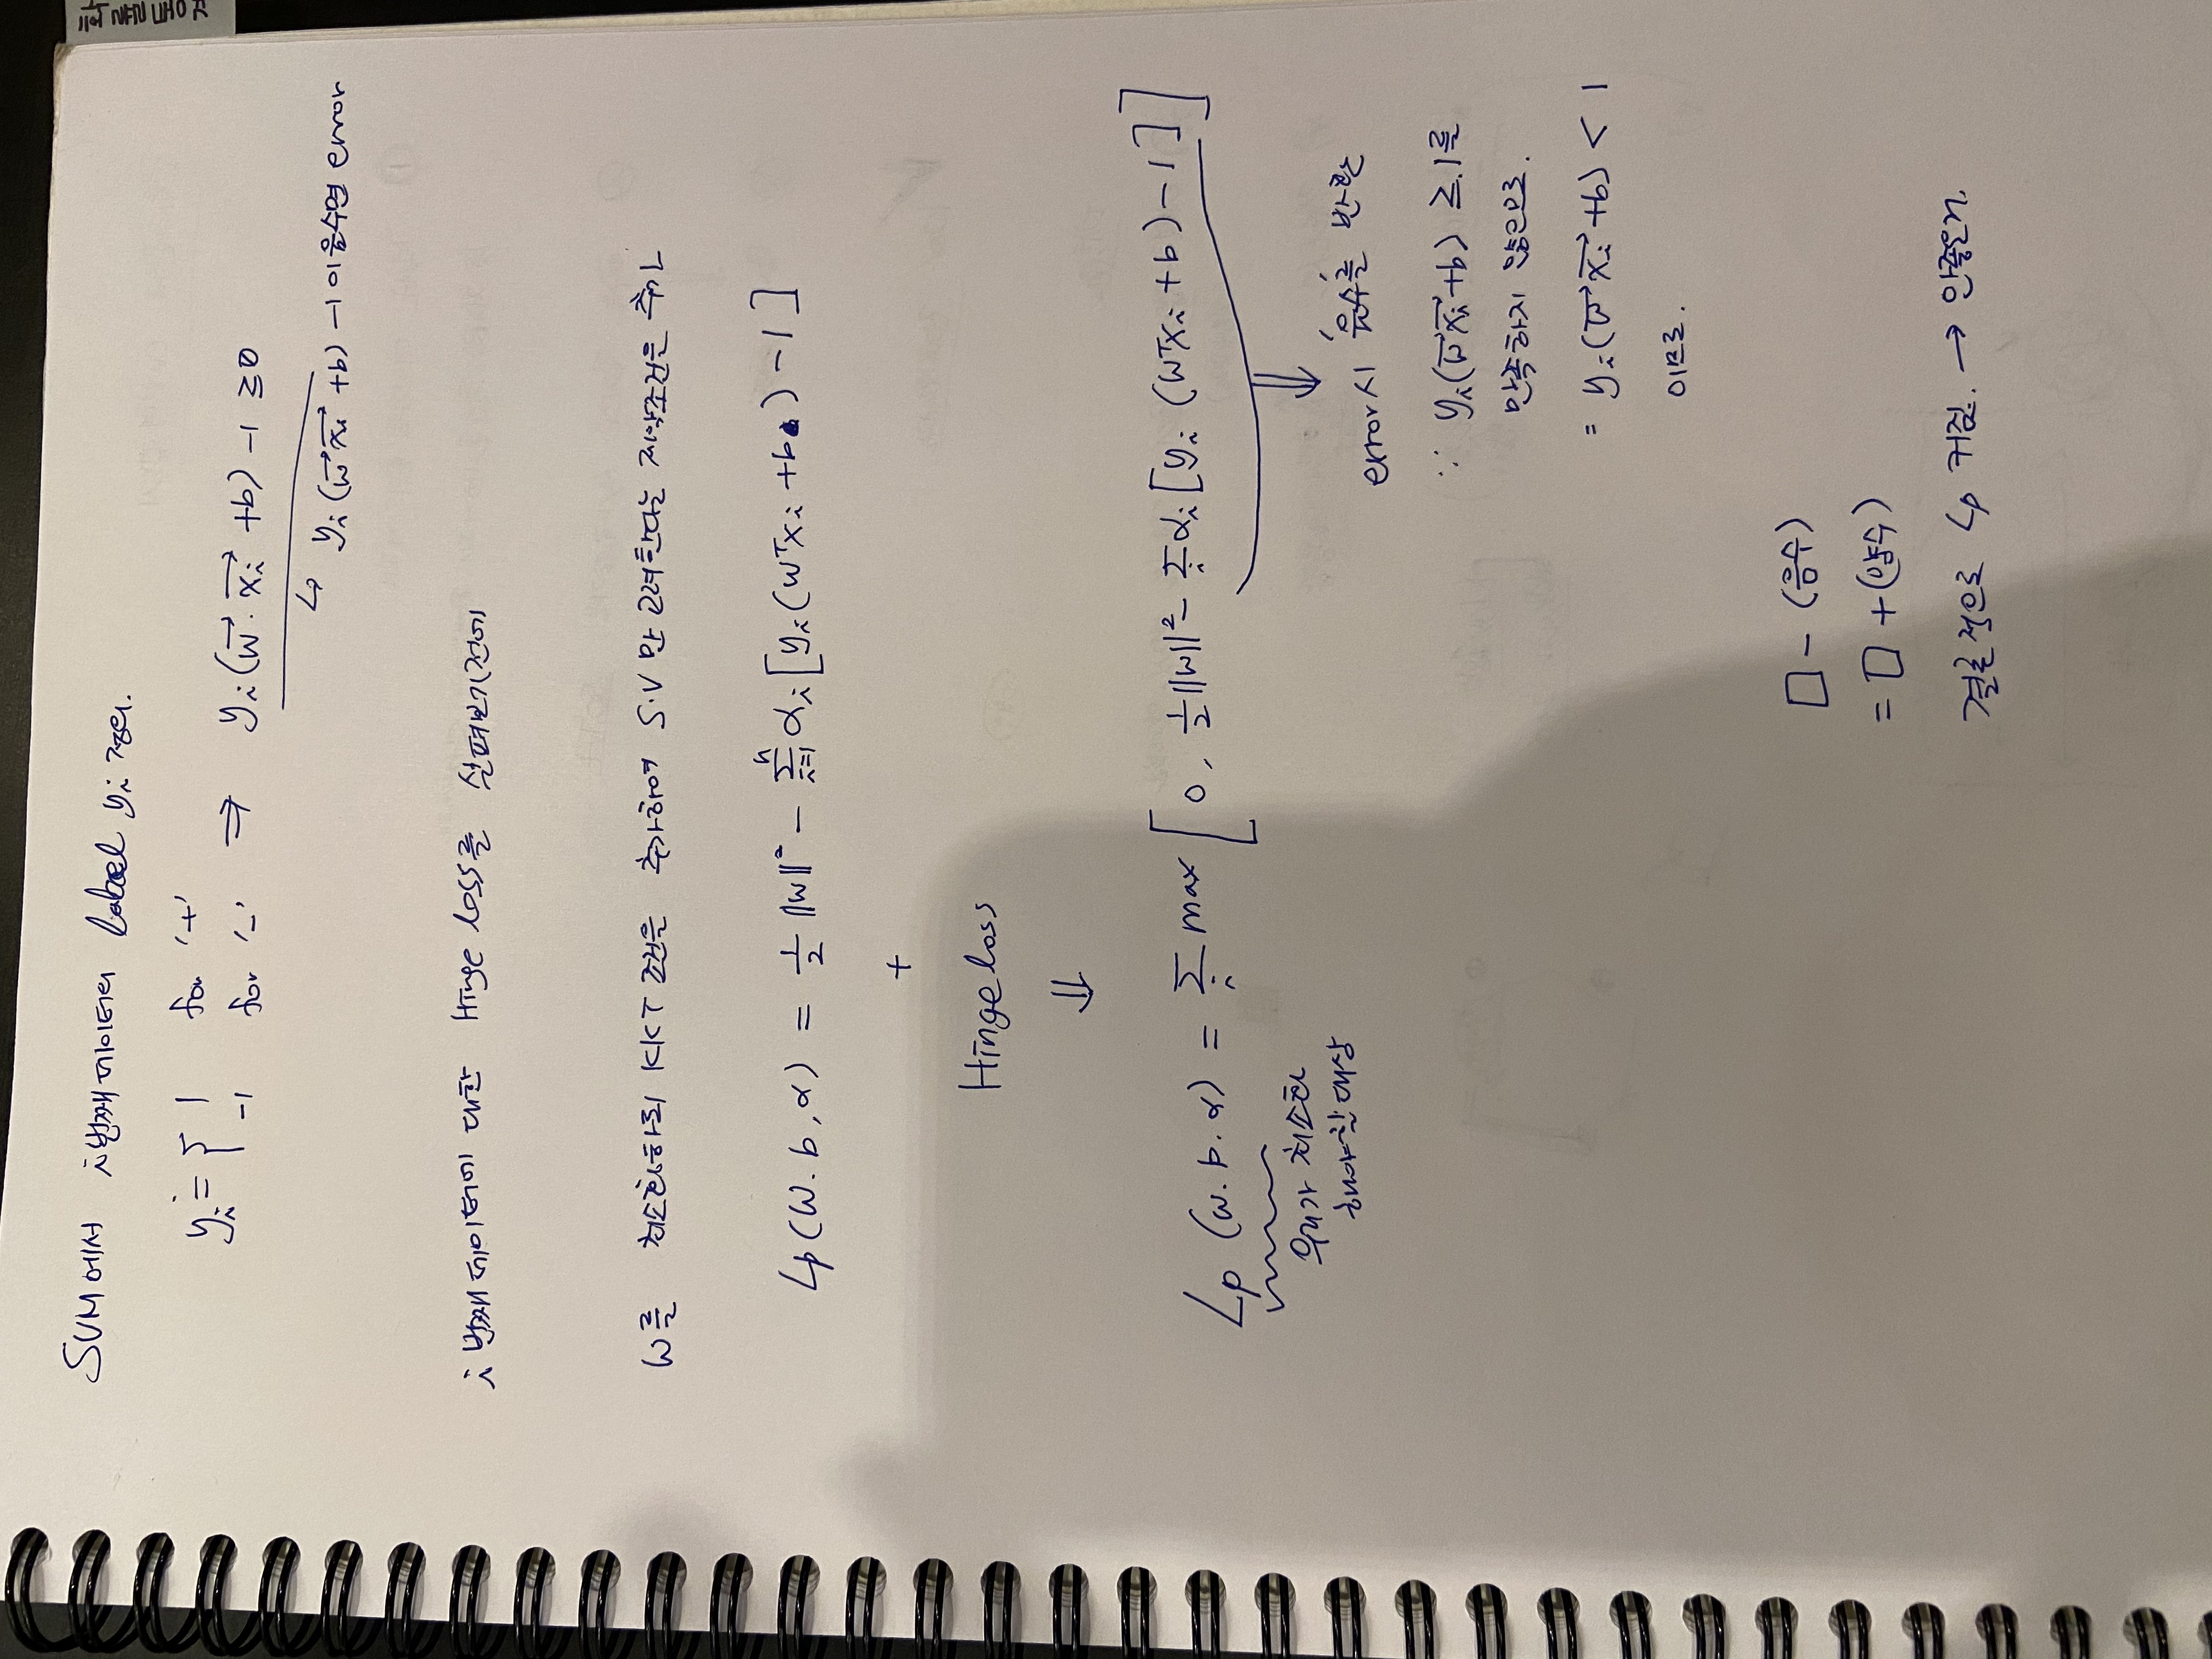 SVM에서 i번째 데이터의 label yi 정의.
yi = { 1 for '+'
-1 for '-' ⇒ yi(w⃗·x⃗i +b) -1 ≥0
↳ yi(w⃗x⃗i +b) -1이 음수면 error
i번째 데이터에 대한 Hinge loss를 살펴보기전에
w를 최소화하되 KKT 조건을 추가하여 S.V 만 고려한다는 제약조건을 추가
Lp(w.b,α) = 1/2 ||w||² - Σ(i=1, n) αi[yi(wᵀxi +b) -1]
+
Hinge loss
⇓
Lp (w.b.α) = Σi max [0, 1/2||w||² - Σi αi[yi (wᵀxi +b) -1]]
우리가 최소화
해야할 대상
error시 '음수'를 반환
∵ yi(w⃗x⃗i+b) ≥ 1를
만족하지 않으므로.
= yi(w⃗x⃗i +b) < 1
이므로.
□ - (음수)
= □ +(양수)
결론적으로 Lp 커짐. → 안좋은거.